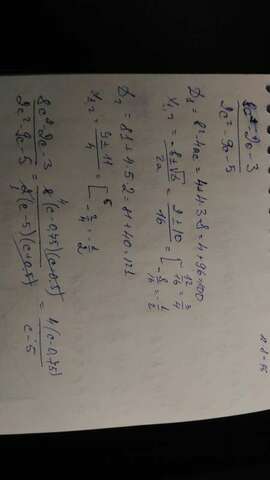 8c² - 2c - 3
2c² - 9c - 5
D₁ = b² - 4ac = 4 + 4·3·8 = 4 + 96 = 100
x₁,₂ = -b ± √D / 2a = 2 ± 10 / 16 = [ 12/16 = 3/4
-8/16 = -1/2
D₂ = 81 + 4·5·2 = 81 + 40 = 121
x₁,₂ = 9 ± 11 / 4 = [ 5
-2/4 = -1/2
8c² - 2c - 3 / 2c² - 9c - 5 = 8 4 (c - 0,75)(c + 0,5) / 2 1 (c - 5)(c + 0,5) = 4(c - 0,75) / c - 5